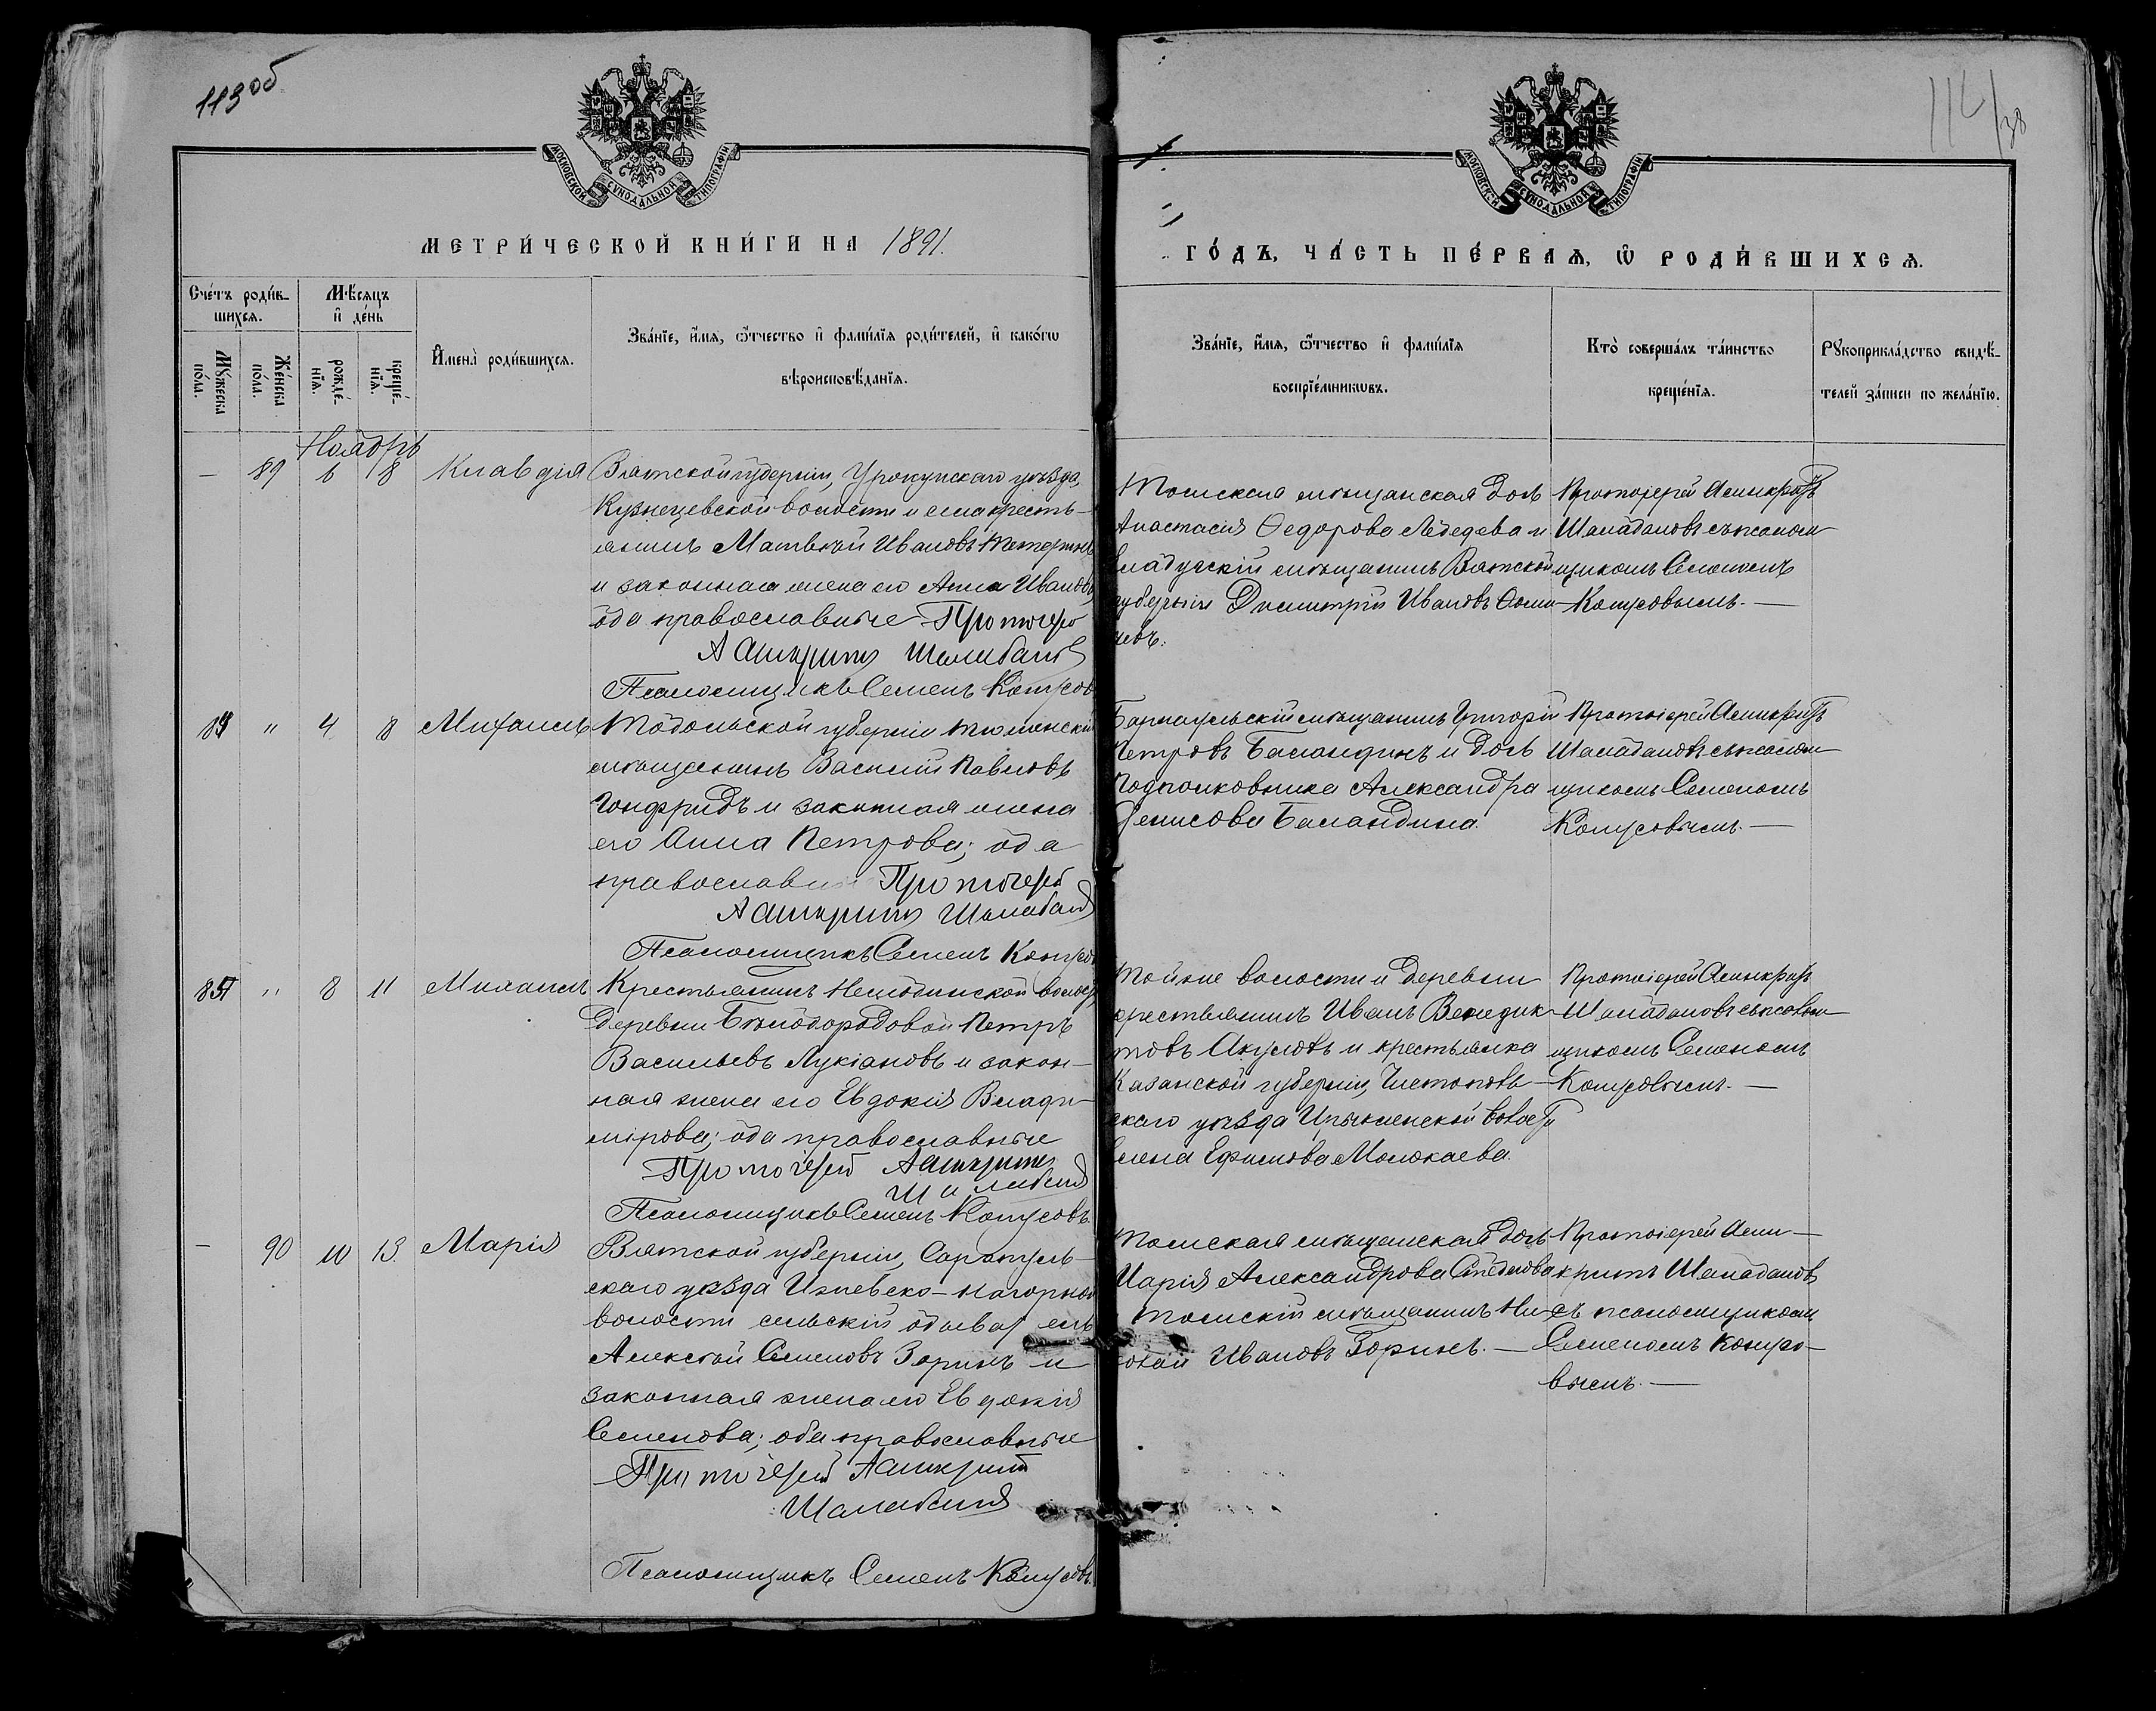 113 об
114/38
МОСКОВСКОЙ СУНОДАЛЬНОЙ ТИПОГРАФІИ
МОСКОВСКОЙ СУНОДАЛЬНОЙ ТИПОГРАФІИ
МЕТРИ́ЧЕСКОЙ КНИ́ГИ НА 1891.
ГО́ДЪ, ЧА́СТЬ ПЕ́РВАѦ, Ѡ РОДИ́ВШИХСѦ.
Сче́тъ роди́в-
шихсѧ.
Мꙋ́жеска
по́ла.
Же́нска
по́ла.
Мѣ́сѧцъ
и де́нь
рожде́-
нїѧ.
креще́-
нїѧ.
Имена̀ роди́вшихсѧ.
Зва́нїе, и́мѧ, ѻ́тчество и фами́лїѧ роди́телей, и како́гѡ
вѣроисповѣ́данїѧ.
Зва́нїе, и́мѧ, ѻ́тчество и фами́лїѧ
воспрїе́мникѡвъ.
Кто̀ соверша́лъ та́инство
креще́нїѧ.
Рꙋкоприкла́дство свидѣ́-
телей за́писи по жела́нїю.
Ноябрь
— 89 6 8 Клавдія
Вятской губерніи, Уржумскаго уѣзда,
Кузнецевской волости и села кресть-
янинъ Матвѣй Ивановъ
и законная жена его Анна Иванов
оба православные Протоіерей
Асинкритъ Шалабановъ
Псаломщикъ Семенъ Комусов
Томская мѣщанская дочь
Анастасія Ѳедорова Лебедева и
елабужскій мѣщанинъ Вятской
губерніи Димитрій Ивановъ Ѳоми-
чевъ.
Протоіерей Асинкритъ
Шалабановъ съ псалом-
щикомъ Семеномъ
Комусовымъ. —
84 " 4 8 Михаилъ
Тобольской губерніи Тюменскій
мѣщанинъ Василій Павловъ
Гонфридъ и законная жена
его Анна Петрова; оба
православн Протоіерей
Асинкритъ Шалабановъ
Псаломщикъ Семенъ Комусов
Барнаульскій мѣщанинъ Григорій
Петровъ Баландинъ и дочь
Подполковника Александра
Денисова Баландина.
Протоіерей Асинкритъ
Шалабановъ съ псалом-
щикомъ Семеномъ
Комусовымъ. —
85 " 8 11 Михаилъ
Крестьянинъ Нелюбинской волост.,
деревни Бѣлобородовой Петръ
Васильевъ Лукіановъ и закон-
ная жена его Евдокія Влади-
мірова; оба православные
Протоіерей Асинкритъ
Шалабановъ
Псаломщикъ Семенъ Комусовъ.
Тойже волости и деревни
крестьянинъ Иванъ Венедик-
товъ Акуловъ и крестьянка
Казанской губерніи, Чистополь-
скаго уѣзда волости
Елена Ефимова Молокаева.
Протоіерей Асинкритъ
Шалабановъ съ псалом-
щикомъ Семеномъ
Комусовымъ. —
— 90 10 13. Марія
Вятской губерніи, Сарапуль-
скаго уѣзда Ижевско-Нагорной
волости сельскій обыватель
Алексѣй Семеновъ Зоринъ и
законная жена его Евдокія
Семенова; оба православные
Протоіерей Асинкритъ
Шалабановъ
Псаломщикъ Семенъ Комусовъ.
Томская мѣщанская дочь
Марія Александрова
и Томскій мѣщанинъ Ни-
колай Ивановъ Зоринъ. —
Протоіерей Асин-
критъ Шалабановъ
съ псаломщикомъ
Семеномъ Комусо-
вымъ. —